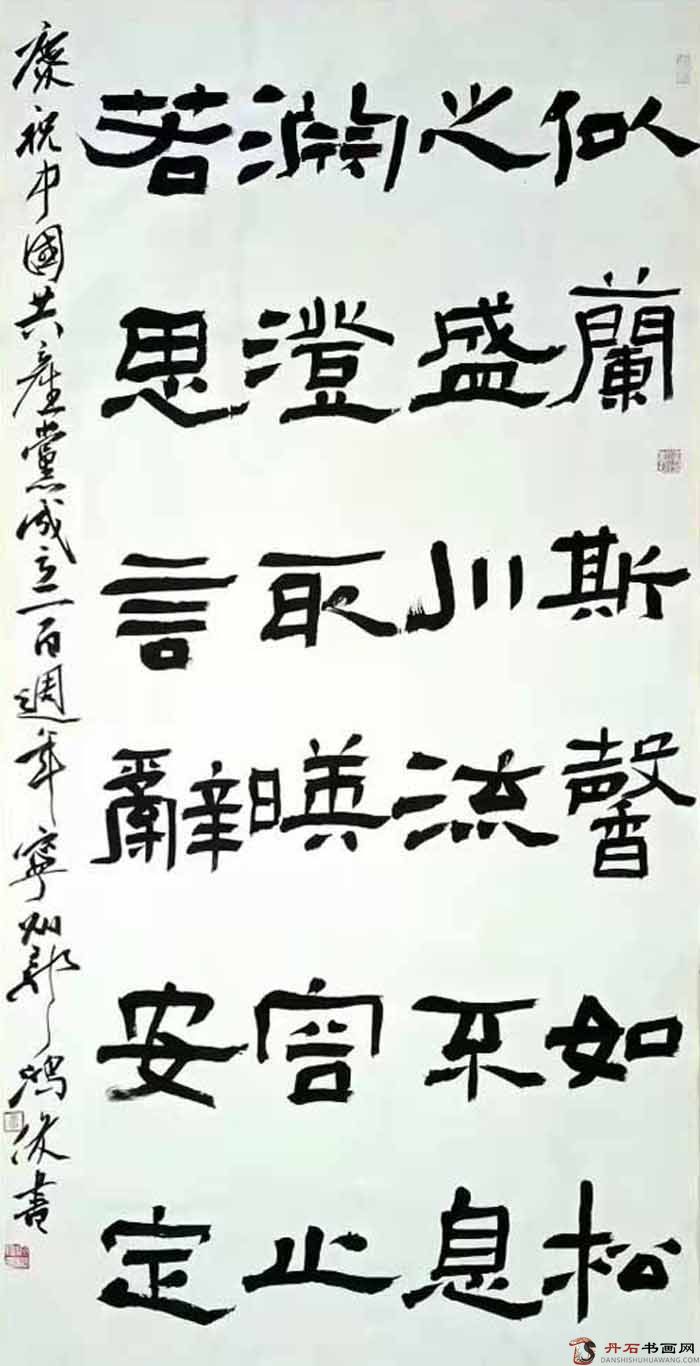 似蘭斯馨如松
之盛川流不息
淵澄取暎容止
若思言辭安定
慶祝中國共産黨成立一百週年寧州鴻書
丹石书画网
DANSHISHUHUAWANG.COM